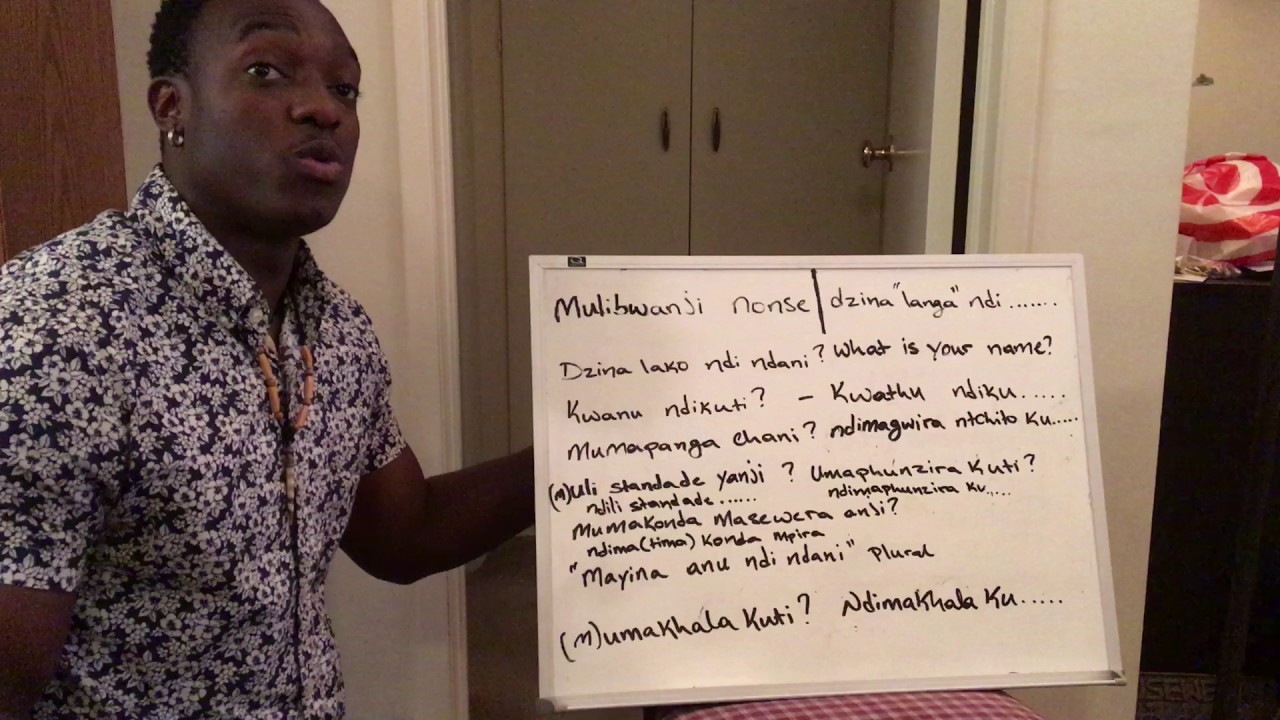 Mulibwanji nonse | dzina "langa" ndi .......
Dzina lako ndi ndani? What is your name?
Kwanu ndikuti? - Kwathu ndiku.....
Mumapanga chani? ndimagwira ntchito ku.....
(m)uli standade yanji ? Umaphunzira kuti?
ndili standade...... ndimaphunzira ku.....
Mumakonda masewera anji?
ndima(tima) konda mpira
"Mayina anu ndi ndani" plural
(m)umakhala kuti? Ndimakhala ku.....